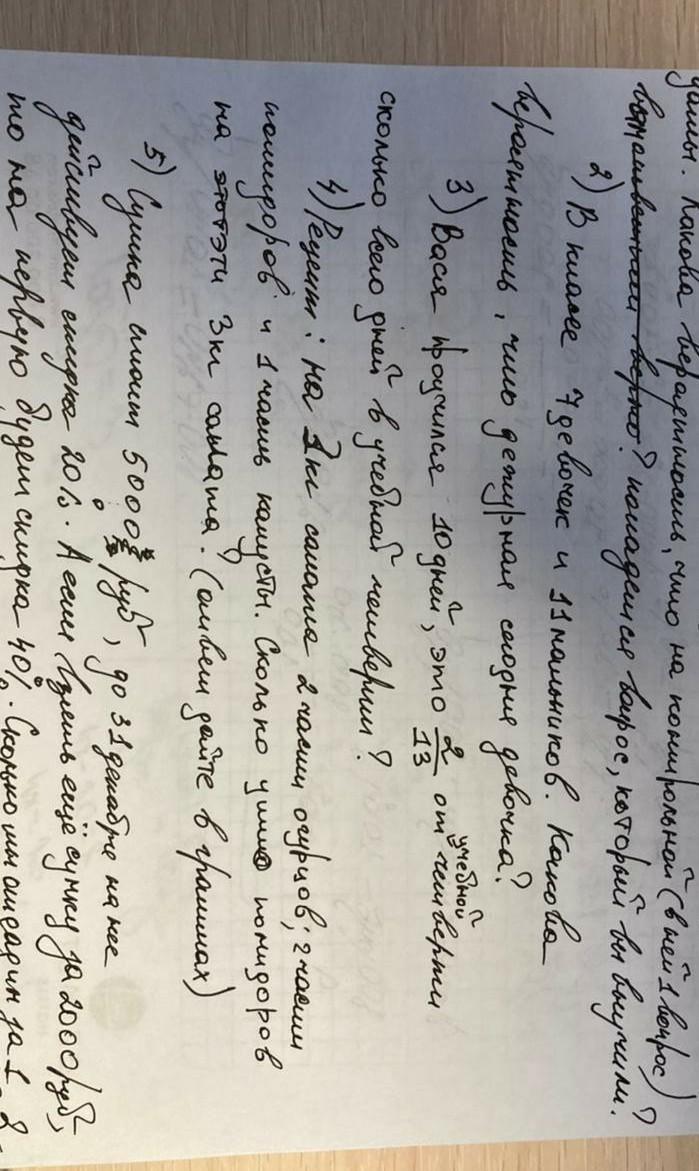 учили. Какова вераетность, что на контрольной (в ней 1 вопрос)
попадется вапрос, который вы выучили?
2) В классе 7 девочек и 11 мальчиков. Какова
вераетность, что дежурная сегодня девочка?
3) Вася проучился 10 дней, это 2/13 от учебной четверти
сколько всего дней в учебной четверти?
4) Рецепт: на 1 кг салата 2 части огурцов; 2 части
помидоров и 1 часть капусты. Сколько ушло помидоров
на эти 3 кг салата? (ответ дайте в граммах)
5) Сумка стоит 5000 руб, до 31 декабря на нее
действует скидка 20%. А если взять ещё сумку за 2000 руб,
то на первую будет скидка 40%. Сколько мы за 1